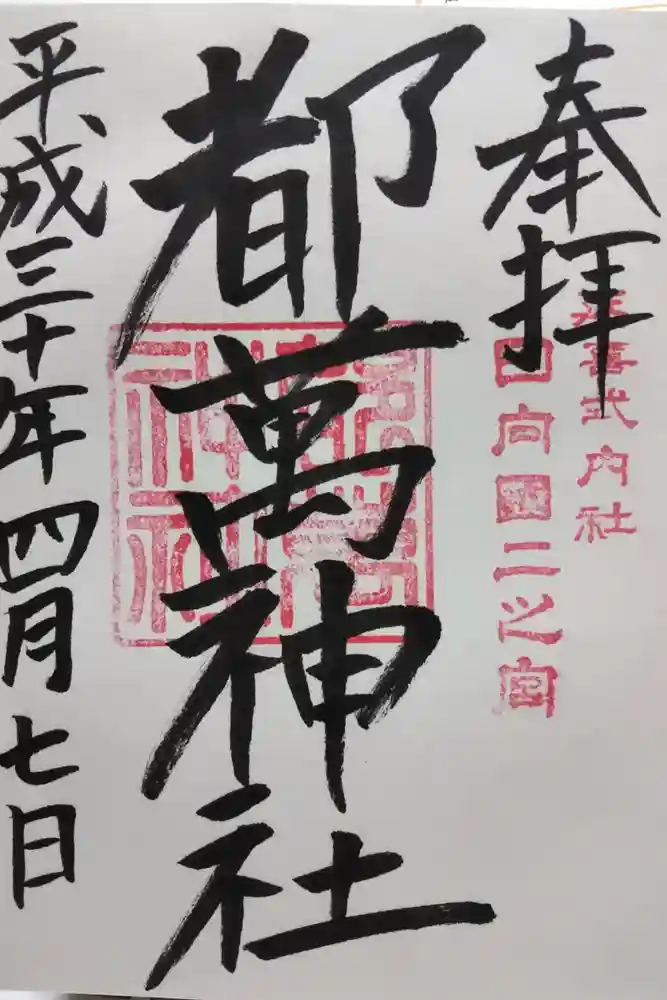 奉拝
延喜式内社
日向国二之宮
都萬神社
平成三十年四月七日